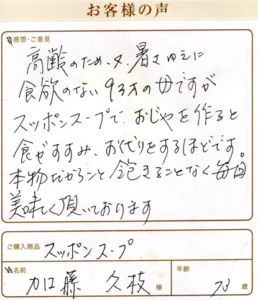 お客様の声
感想・ご意見
高齢のため又、暑さゆえに
食欲のない93才の母ですが
スッポンスープで、おじやを作ると
食がすすみ、お代りをするほどです。
本物だからこと飽きることなく毎日
美味しく頂いております
ご購入商品
スッポンスープ
お名前
加藤 久枝 様
年齢
73 歳